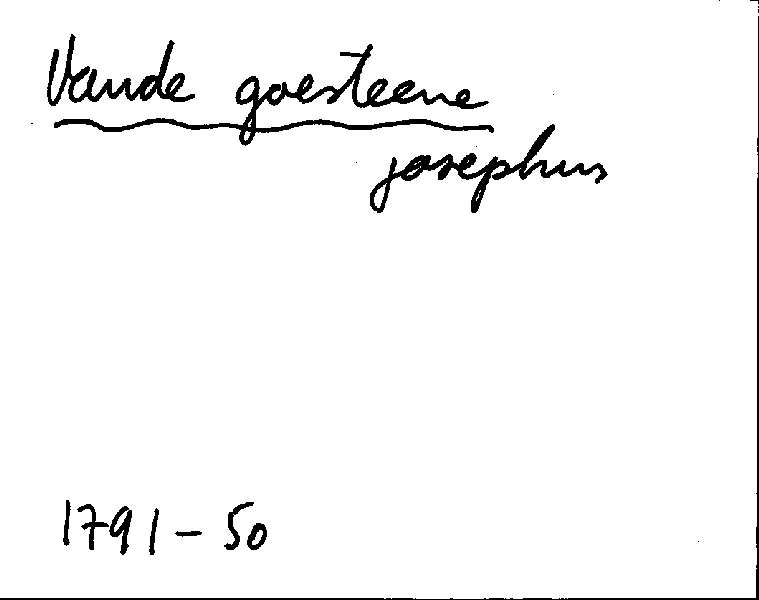 Vande goesteene
josephus
1791-50